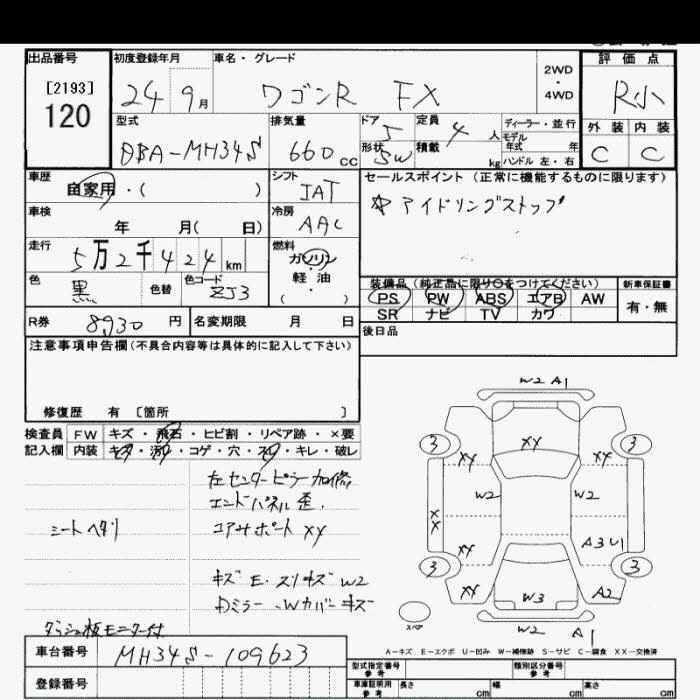 出品番号 初度登録年月 車名・グレード 2WD ・ 4WD 評価点
[2193]
120
24 9月 ワゴンR FX R小
型式 排気量 ドア 5 定員 4人 ディーラー・並行 外装 内装
モデル
年式 年
DBA-MH34S 660cc 形状 5W 積載 kg ハンドル 左・右 C C
車歴 シフト セールスポイント(正常に機能するものに限ります)
自家用・( ) IAT ☆アイドリングストップ
車検 冷房
年 月( 日) AAC
走行 燃料
5万2千424km ガソリン・軽油
( )
色 色替 色コード 装備品(純正品に限り○をつけてください) 新車保証書
黒 ZJ3 PS PW ABS エアB AW 有・無
SR ナビ TV カワ
R券 8930円 名変期限 月 日 後日品
注意事項申告欄(不具合内容等は具体的に記入して下さい)
修復歴 有 [箇所 ]
検査員 FW キズ・飛石・ヒビ割・リペア跡・×要
記入欄 内装 キズ・汚れ・コゲ・穴・スレ・キレ・破レ
左センターピラー加修
エンドパネル歪.
シートヘタリ
コアサポートXY
キズE.スリキズW2
Dミラー.Wカバーキズ
ダッシュ板モニター付
W2 A1
3 XY 3
XY XY
W2 W2
XX
XY A3 U1
3 3
XY W3 A2
スペア W2 A1
A-キズ E-エクボ U-凹み W-補修跡 S-サビ C-腐食 XX-交換済
車台番号 MH34S-109623
型式指定番号 参考 類別区分番号 参考
登録番号 車庫証明用 参考 長さ cm 幅 cm 高さ cm